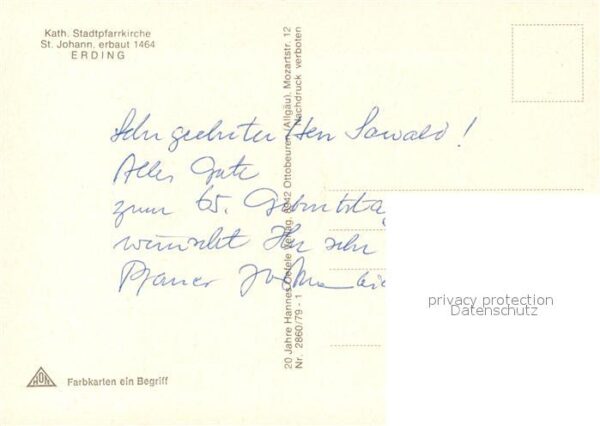 Kath. Stadtpfarrkirche
St. Johann. erbaut 1464
ERDING
Sehr geehrter Herr Sawald!
Alles Gute
zum 65. Geburtsta
wünscht Ihr sehr
Pfarrer
20 Jahre Hannes Oefele Verlag. 8942 Ottobeuren (Allgäu). Mozartstr. 12
Nr. 2860/79 - 1 Nachdruck verboten
privacy protection
Datenschutz
Farbkarten ein Begriff